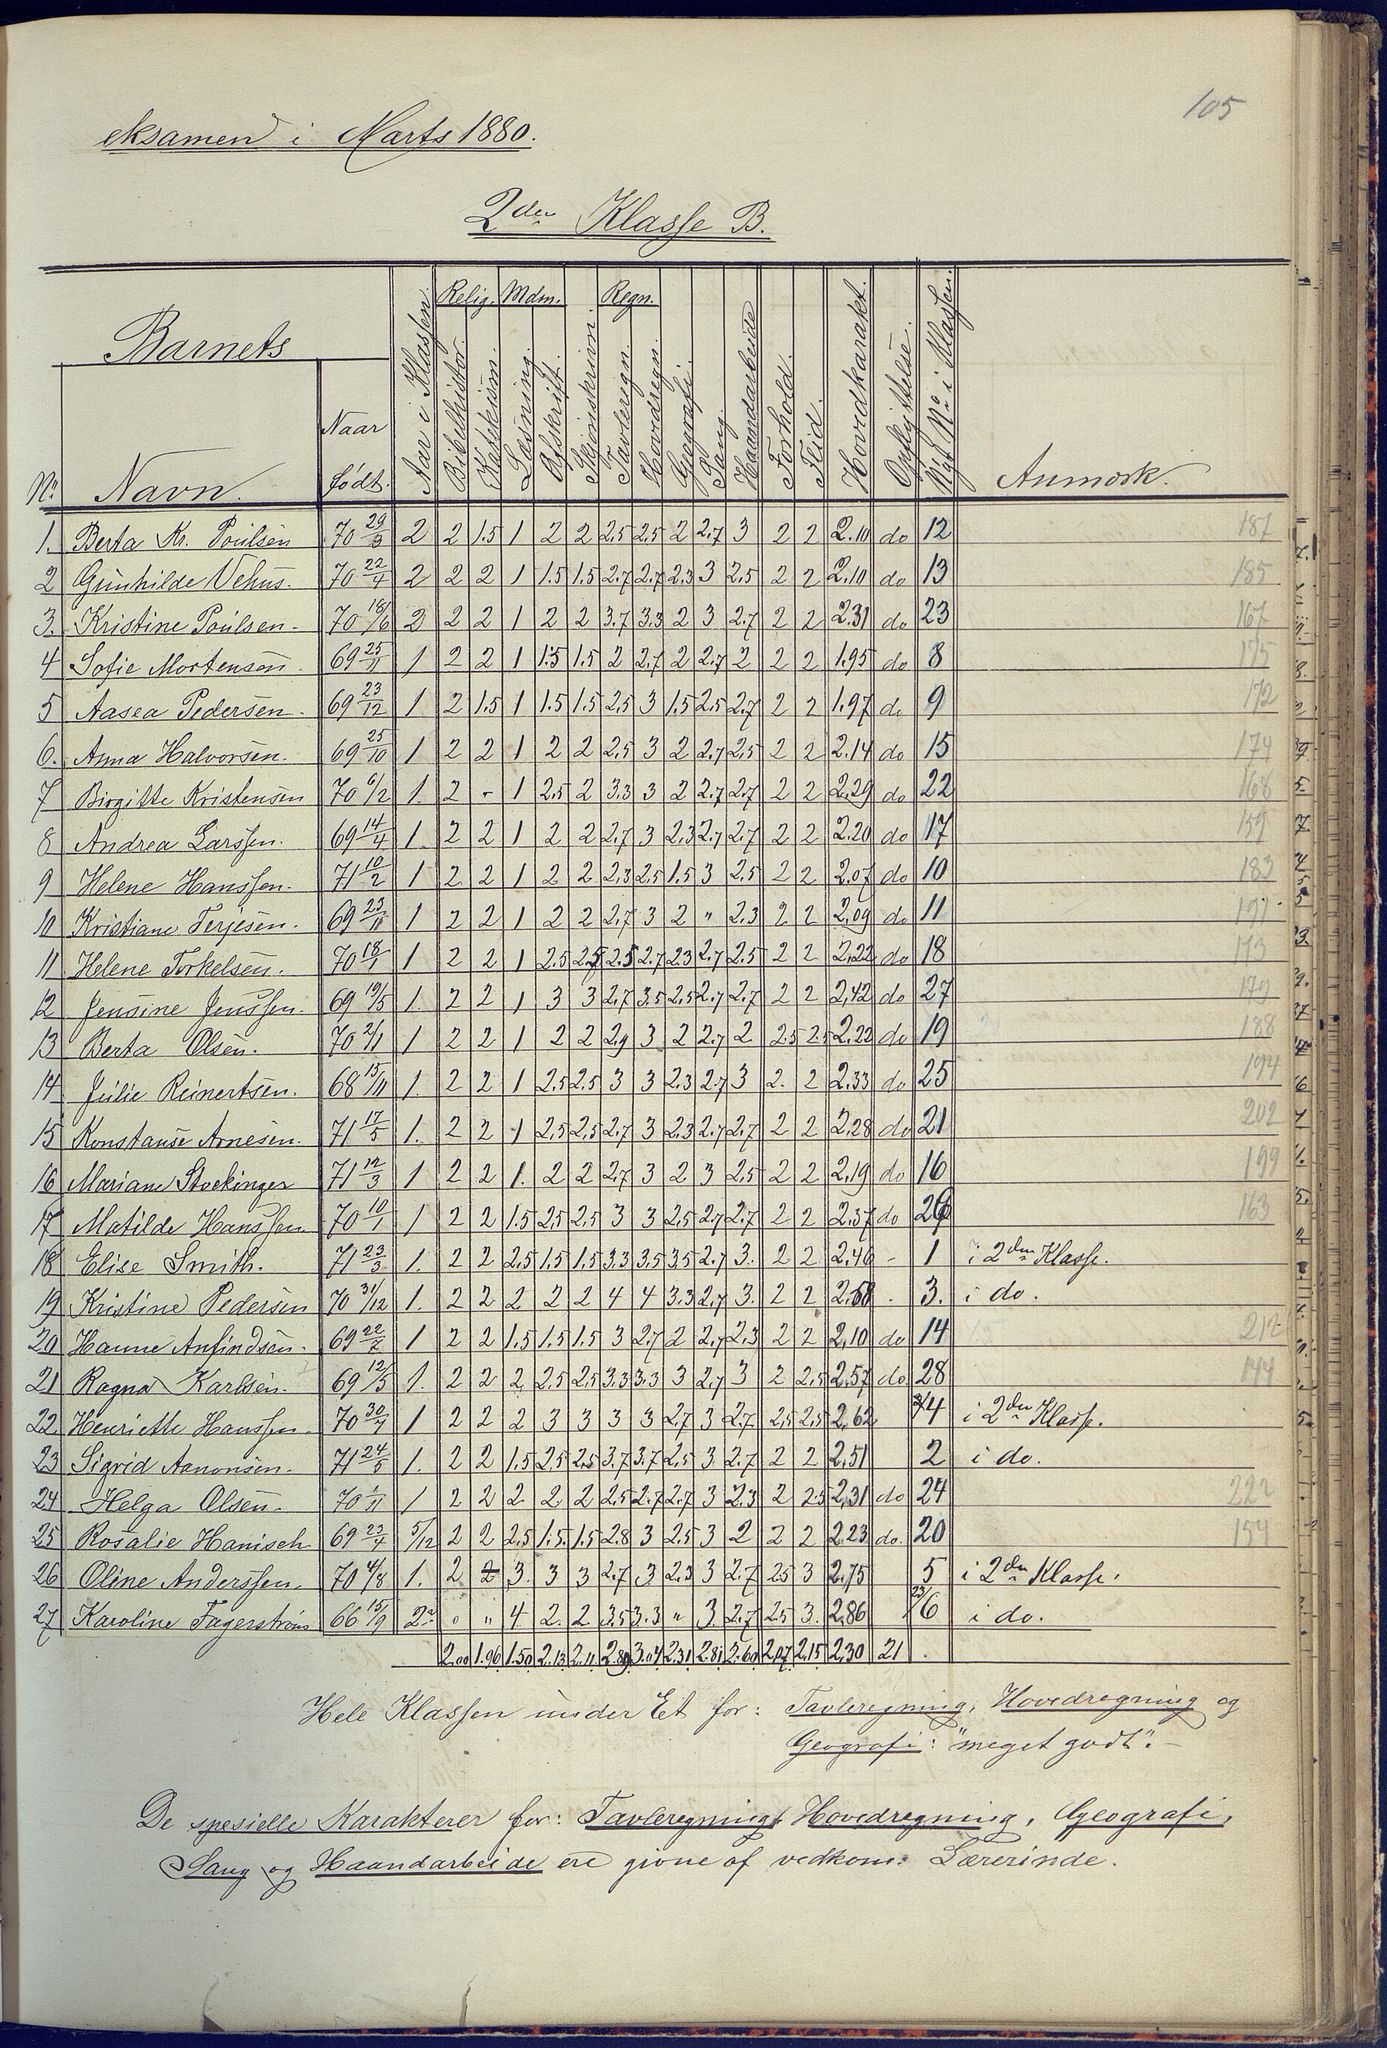 105
eksamen i Marts 1880.
2den Klasse B.
Barnets
Relig. Mdm. Regn.
No Navn. Naar født. Aar i Klassen. Bibelhistor. Katekism. Læsning. Afskrift. Skjönskrivn. Tavleregn. Hovedregn. Geografi. Sang. Haandarbeide Forhold. Flid. Hovedkarakt. Opflyttelse. Nyt No i Klassen. Anmærk.
1. Berta Kr. Poulsen 70 29/3 2 2 1.5 1 2 2 2.5 2.5 2 2.7 3 2 2 2.10 do 12 187
2 Gunhilde Vehus. 70 22/4 2 2 2 1 1.5 1.5 2.7 2.7 2.3 3 2.5 2 2 2.10 do 13 185
3. Kristine Poulsen. 70 18/6 2 2 2 1 2 2 3.7 3.3 2 3 2.7 2 2 2.31 do 23 167
4 Sofie Mortensen. 69 25/11 1 2 2 1 1.5 1.5 2 2.7 2 2.7 2 2 2 1.95 do 8 175
5 Aasea Pedersen. 69 23/12 1 2 1.5 1 1.5 1.5 2.5 3 1.5 2.5 2.7 2 2 1.97 do 9 172
6. Anna Halvorsen. 69 25/10 1 2 2 1 2 2 2.5 3 2 2.7 2.5 2 2 2.14 do 15 174
7 Birgitte Kristensen 70 6/2 1. 2 - 1 2.5 2 3.3 3 2 2.7 2.7 2 2 2.29 do 22 168
8 Andrea Larssen. 69 14/4 1. 2 2 1 2 2 2.7 3 2.3 2.7 2.7 2 2 2.20 do 17 159
9 Helene Hanssen. 71 10/2 1 2 2 1 2 2 2.3 2.5 1.5 3 2.5 2 2 2.07 do 10 183
10 Kristiane Terjesen. 69 23/11 1 2 2 1 2 2 2.7 3 2 " 2.3 2 2 2.09 do 11 191
11 Helene Torkelsen. 70 18/1 1 2 2 1 2.5 2.5 2.5 2.7 2.3 2.7 2.5 2 2 2.22 do 18 173
12 Jensine Jenssen. 69 19/5 1. 2 2 1 3 3 2.7 3.5 2.5 2.7 2.7 2 2 2.42 do 27 179
13 Berta Olsen. 70 2/1 1 2 2 1 2 2 2.9 3 2 2.7 2 2.5 2.5 2.22 do 19 188
14 Julie Reinertsen. 68 15/11 1. 2 2 1 2.5 2.5 3 3 2.3 2.7 3 2. 2 2.33 do 25 194
15 Konstanse Arnesen. 71 17/5 1. 2 2 1 2.5 2.5 2.7 3 2.3 2.7 2.7 2 2 2.28 do 21 202
16 Mariane Stockinger 71 12/3 1 2 2 1. 2 2 2.7 3 2 3 2.5 2 2 2.19 do 16 199
17 Matilde Hanssen. 70 10/1 1 2 2 1.5 2.5 2.5 3 3 2.5 2.7 2.7 2 2 2.37 do 26 163
18 Elise Smith. 71 23/3 1. 2 2 2.5 1.5 1.5 3.3 3.5 3.5 2.7 3. 2 2 2.46 - 1 i 2den Klasse.
19 Kristine Pedersen 70 31/12 1. 2 2 2 2 2 4 4 3.3 2.7 3. 2 2 2.58 . 3. i do.
20 Hanne Anfindsen. 69 22/7 1 2 2 1.5 1.5 1.5 3 2.7 2 2.7 2.3 2 2 2.10 do 14 212
21 Ragna Karlsen. 69 12/5 1. 2 2 2 2.5 2.5 3.3 3.3 3 2.7 3 2 2.5 2.57 do. 28 144
22 Henriette Hanssen. 70 30/7 1 2 2 2 3 3 3 3 2.7 3 2.7 2.5 2.5 2.62 4 i 2den Klasse.
23 Sigrid Aanonsen. 71 24/5 1. 2 2 1.5 2.5 2.5 3.7 3.7 2.5 3 2.7 2 2 2.51 2 i do.
24 Helga Olsen. 70 1/11 1 2 2 2 2 2 2.5 2.7 2.7 3 2.3 2 2.5 2.31 do 24 222
25 Rosalie Hanisch 69 23/4 5/12 2 2 2.5 1.5 1.5 2.8 3 2.5 3 2 2 2 2.23 do. 20 154
26 Oline Anderssen. 70 4/8 1. 2 2 3. 3 3 2.7 3 2.3 3 2.7 2.5 3 2.75 5 i 2den Klasse.
27 Karoline Fagerstrøm 66 15/9 " " 4 2. 2 3.5 3.3 " 3 2.7 2.5 3. 2.86 6 i do.
2.00 1.96 1.50 2.13 2.11 2.89 3.04 2.31 2.81 2.60 2.07 2.15 2.30 21
Hele Klassen under Et for: Tavleregning, Hovedregning og
Geografi: "meget godt". -
De spesielle Karakterer for: Tavleregning, Hovedregning, Geografi,
Sang og Haandarbeide ere givne af vedkom. Lærerinde.